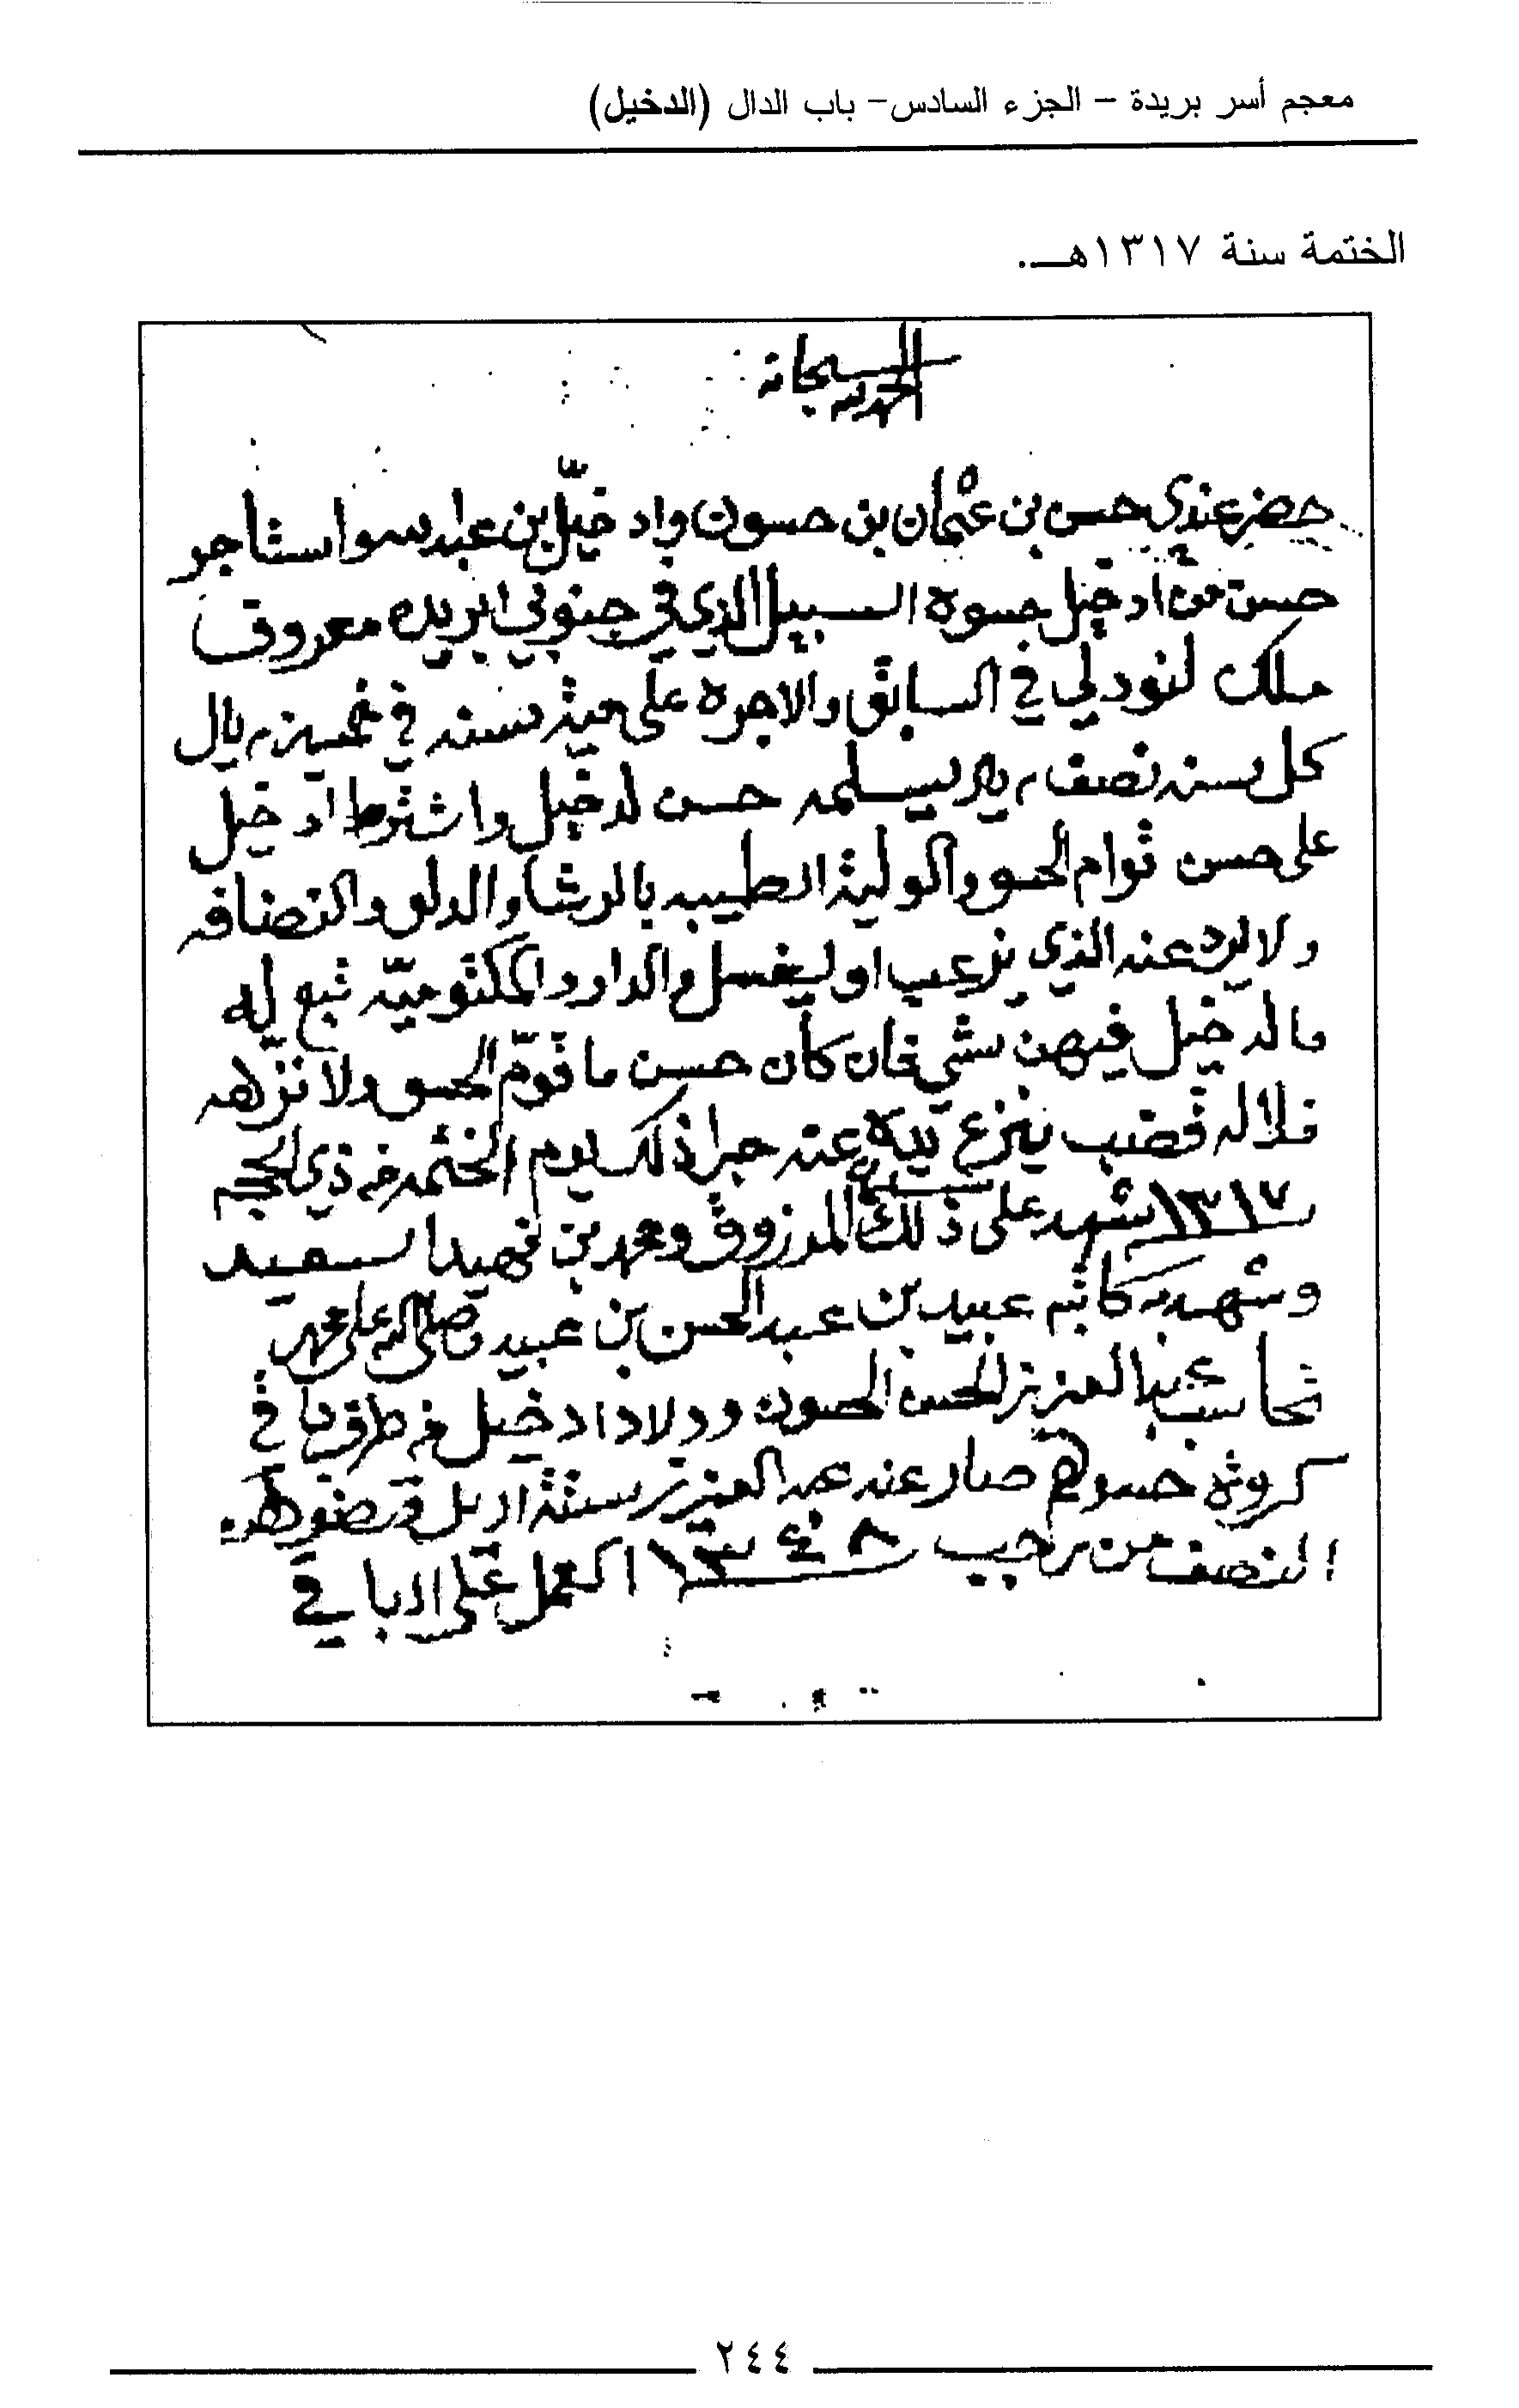 معجم أسر بريدة – الجزء السادس– باب الدال (الدخيل)
الختمة سنة ١٣١٧هـ.
الحمد لله سبحانه
حضر عندي حسن بن عثمان بن حسون وادخيّل بن عبد الله واستاجر
حسن من ادخيل حسوة السبيل الذي في جنوبي ابريده معروف
ملك لنودلي في السابق والاجره على مية سنه في خمسين ريال
كل سنه نصف ريال يسلمه حسن لدخيل واشترط ادخيل
على حسن قوام الحسو والولية الطيبه بالرشا والدلو والنضافه
ولا يرد عنه الذي يزعب او ليغسل والدار والمكتوميّه تبع له
ما لدخيل فيهن شي فان كان حسن ما قوّم الحسو ولا نزهه
فلا له قضب ينزع يده عنه جبرا ذلك يوم الختمه من ذي الحجه
سنة ١٣١٧ شهد على ذلك المرزوق ومحمد بن فهيد السعيد
وشهد به كاتبه عبيد بن عبد المحسن بن عبيد وصلى الله على محمد
تحاسب عبد العزيز الحسن الحسون وولاد ادخيل من طرف ما في
كروة حسوهم صار عند عبد العزيز ستة اريل قضوهن
النصف من رجب ١٣٤٨ العمل على الباقي
٢٤٤